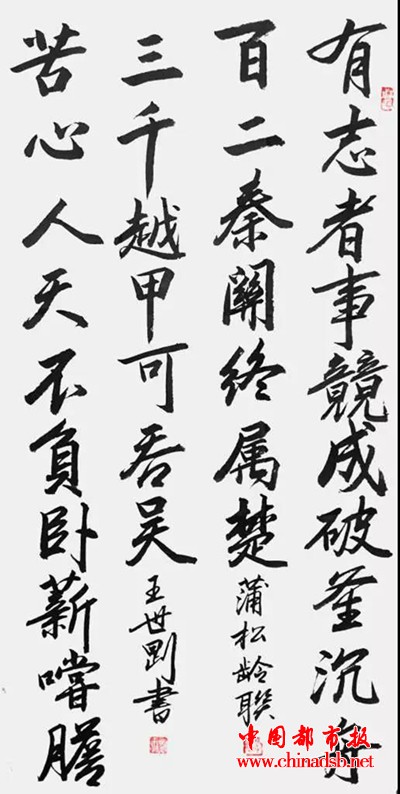 有志者事競成破釜沉舟
百二秦關终属楚
蒲松龄联
苦心人天不負卧薪嚐膽
三千越甲可吞吴
王世剛書
中国都市报
www.chinadsb.net